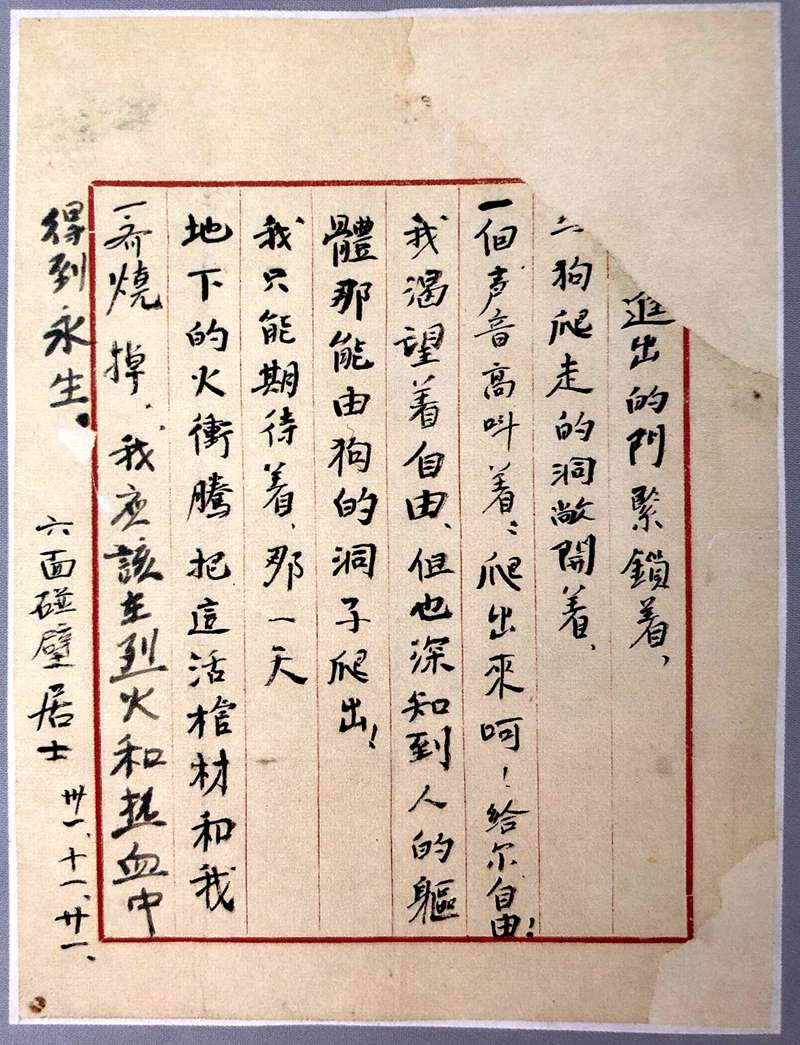 進出的門緊鎖着、
狗爬走的洞敞開着、
一個声音高呌着：爬出來呵！給尔自由！
我渴望着自由、但也深知到人的軀
體那能由狗的洞子爬出！
我只能期待着、那一天
地下的火衝騰把這活棺材和我
一齐燒掉、我应該在烈火和热血中
得到永生。
六面碰壁居士
卅一、十一、廿一、